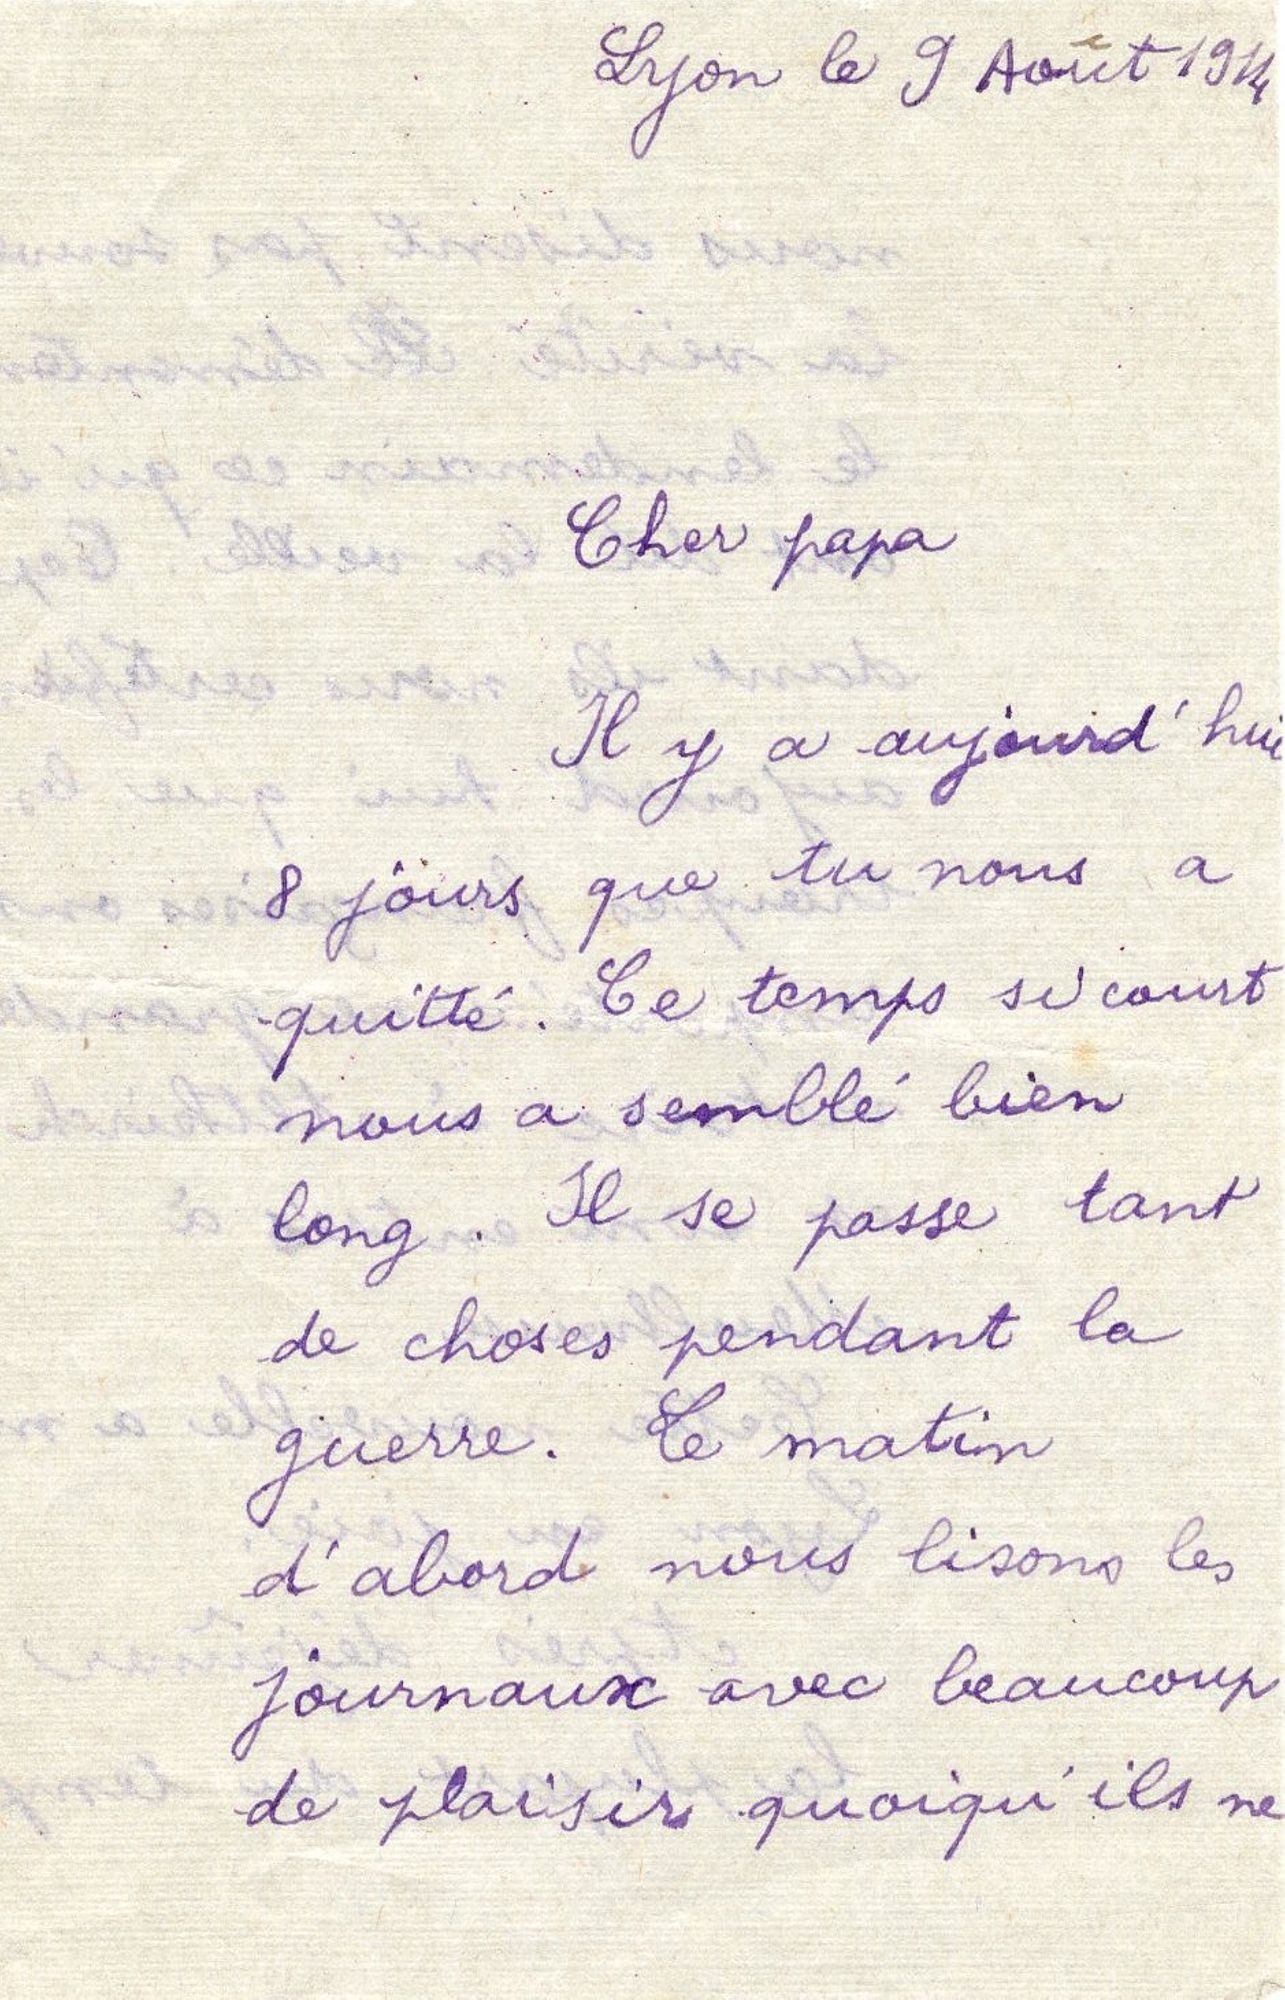 Lyon le 9 Août 1914
Cher papa
Il y a aujourd'hui
8 jours que tu nous a
quitté. Ce temps si court
nous a semblé bien
long. Il se passe tant
de choses pendant la
guerre. Ce matin
d'abord nous lisons les
journaux avec beaucoup
de plaisir quoiqu'ils ne